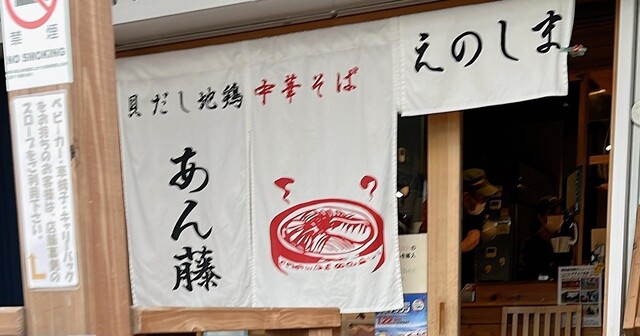 禁煙
NO SMOKING
ベビーカー・車椅子・キャリーバック
をお持ちのお客様は、店舗裏側の
スロープをご利用下さい。
えのしま
貝だし地鶏中華そば
あん藤